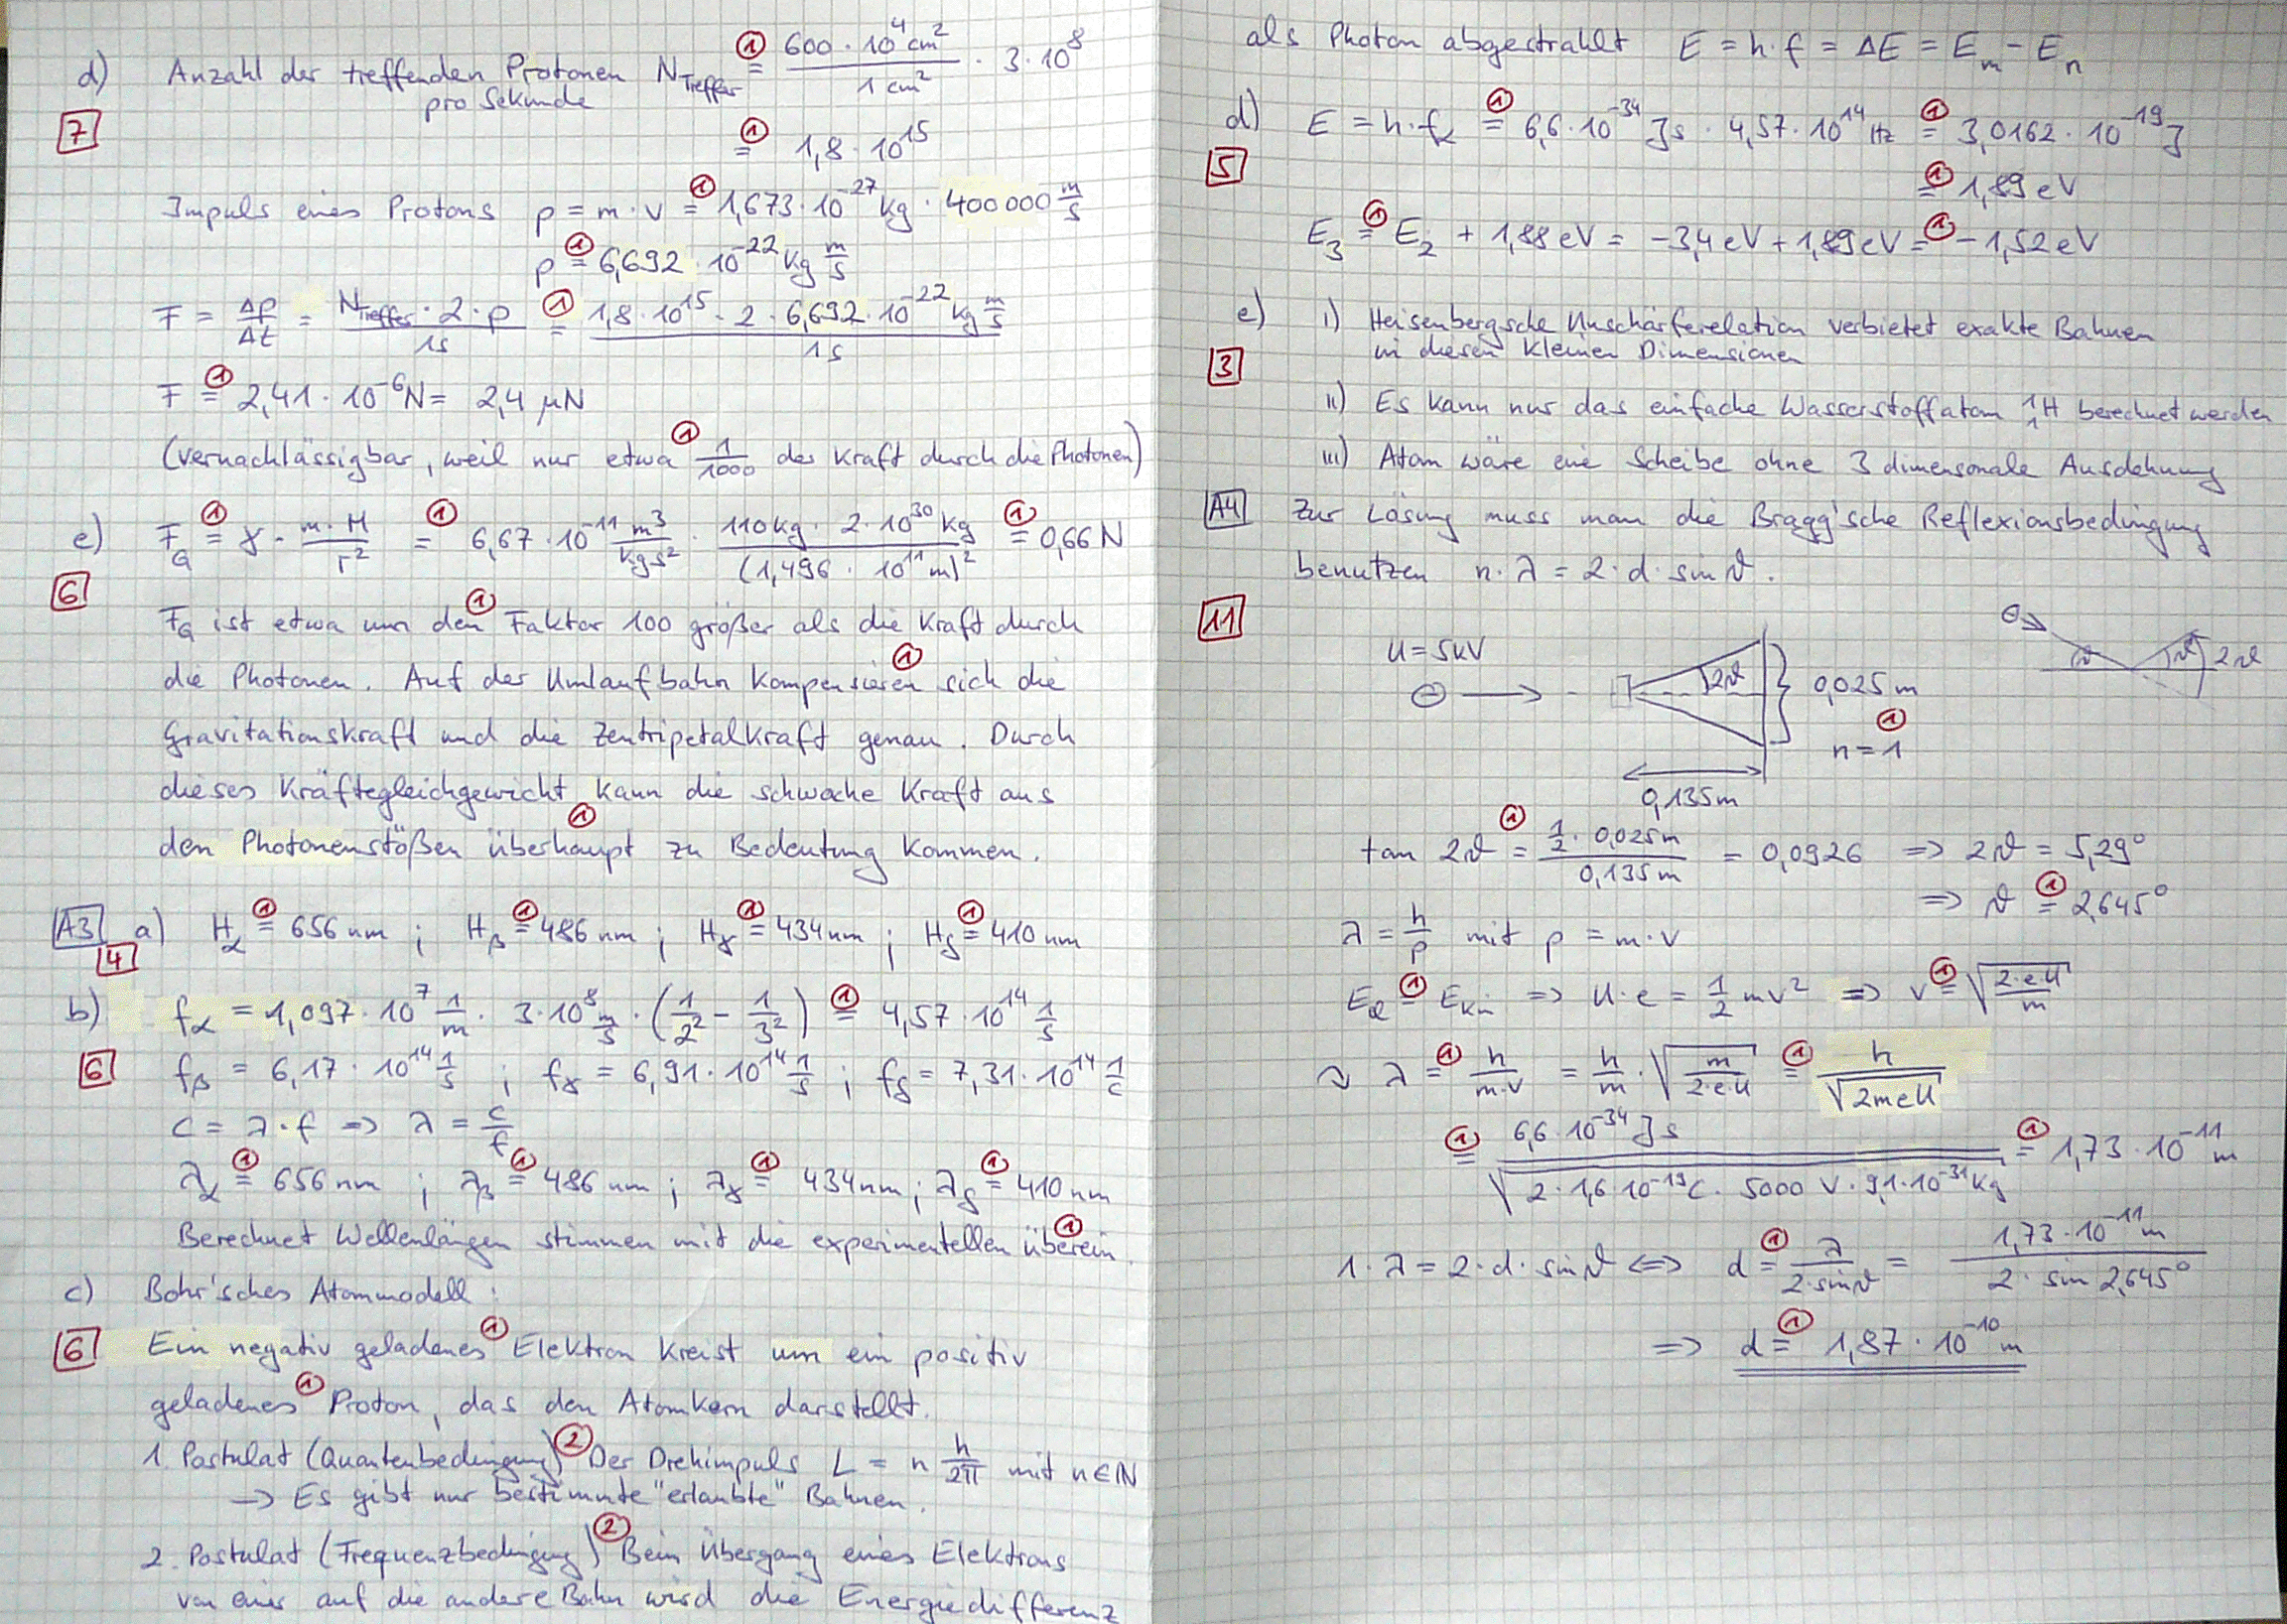 d) Anzahl der treffenden Protonen N_Treffer ① = 600 · 10⁴ cm² / 1 cm² · 3 · 10⁸
pro Sekunde
7
① = 1,8 · 10¹⁵
Impuls eines Protons p = m · v ① = 1,673 · 10⁻²⁷ kg · 400 000 m/s
p ① = 6,692 · 10⁻²² kg m/s
F = Δp/Δt = N_Treffer · 2 · p / 1s ① = 1,8 · 10¹⁵ · 2 · 6,692 · 10⁻²² kg m/s / 1s
F ① = 2,41 · 10⁻⁶ N = 2,4 μN
(vernachlässigbar, weil nur etwa ① 1/1000 der Kraft durch die Photonen)
e) F_G ① = γ · m · M / r² ① = 6,67 · 10⁻¹¹ m³/kg s² · 110 kg · 2 · 10³⁰ kg / (1,496 · 10¹¹ m)² ① = 0,66 N
6
F_G ist etwa um den ① Faktor 100 größer als die Kraft durch
die Photonen. Auf der Umlaufbahn kompensieren ① sich die
Gravitationskraft und die Zentripetalkraft genau. Durch
dieses Kräftegleichgewicht kann die schwache Kraft aus
den Photonenstößen überhaupt ① zu Bedeutung kommen.
A3 a) H_α ① = 656 nm ; H_β ① = 486 nm ; H_γ ① = 434 nm ; H_δ ① = 410 nm
4
b) f_α = 1,097 · 10⁷ 1/m · 3 · 10⁸ m/s · (1/2² - 1/3²) ① = 4,57 · 10¹⁴ 1/s
6
f_β = 6,17 · 10¹⁴ 1/s ; f_γ = 6,91 · 10¹⁴ 1/s ; f_δ = 7,31 · 10¹⁴ 1/s
c = λ · f => λ = c/f
λ_α ① = 656 nm ; λ_β ① = 486 nm ; λ_γ ① = 434 nm ; λ_δ ① = 410 nm
Berechnet Wellenlängen stimmen mit die experimentellen überein ①.
c) Bohr'sches Atommodell :
6
Ein negativ geladenes ① Elektron kreist um ein positiv
geladenes ① Proton, das den Atomkern darstellt.
1. Postulat (Quantenbedingung) ② Der Drehimpuls L = n h/2π mit n ∈ ℕ
-> Es gibt nur bestimmte "erlaubte" Bahnen.
2. Postulat (Frequenzbedingung) ② Beim Übergang eines Elektrons
von einer auf die andere Bahn wird die Energiedifferenz
als Photon abgestrahlt E = h · f = ΔE = E_m - E_n
d) E = h · f_α ① = 6,6 · 10⁻³⁴ Js · 4,57 · 10¹⁴ Hz ① = 3,0162 · 10⁻¹⁹ J
5
① = 1,89 eV
E_3 ① = E_2 + 1,88 eV = -3,4 eV + 1,89 eV = ① -1,52 eV
e) i) Heisenbergsche Unschärferelation verbietet exakte Bahnen
in diesen kleinen Dimensionen
3
ii) Es kann nur das einfache Wasserstoffatom ¹₁H berechnet werden
iii) Atom wäre eine Scheibe ohne 3 dimensonale Ausdehnung
A4 Zur Lösung muss man die Bragg'sche Reflexionsbedingung
benutzen n · λ = 2 · d · sin ϑ .
11
U = 5kV
2ϑ
0,025 m
①
n = 1
0,135m
⊖
ϑ
ϑ
2ϑ
tan 2ϑ ① = 1/2 · 0,025m / 0,135m = 0,0926 => 2ϑ = 5,29°
=> ϑ ① = 2,645°
λ = h/p mit p = m · v
E_el ① = E_kin => U · e = 1/2 mv² => v ① = √(2·e·U/m)
~> λ ① = h/m·v = h/m · √(m/2·e·U) ① = h/√(2meU)
① = 6,6 · 10⁻³⁴ Js / √(2 · 1,6 · 10⁻¹⁹ C · 5000 V · 9,1 · 10⁻³¹ kg) ① = 1,73 · 10⁻¹¹ m
1 · λ = 2 · d · sin ϑ <=> d ① = λ / 2·sin ϑ = 1,73 · 10⁻¹¹ m / 2 · sin 2,645°
=> d ① = 1,87 · 10⁻¹⁰ m